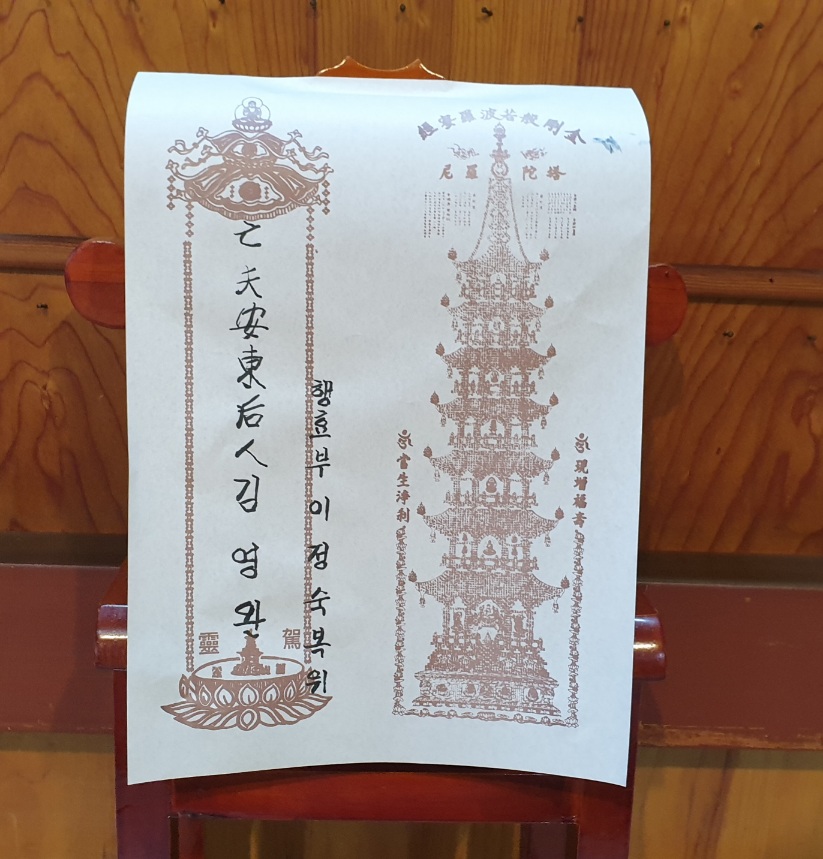 金剛般若波羅蜜經
塔陀羅尼
現增福壽
當生淨刹
亡夫安東后人김영완
행효부 이정숙 복위
靈駕